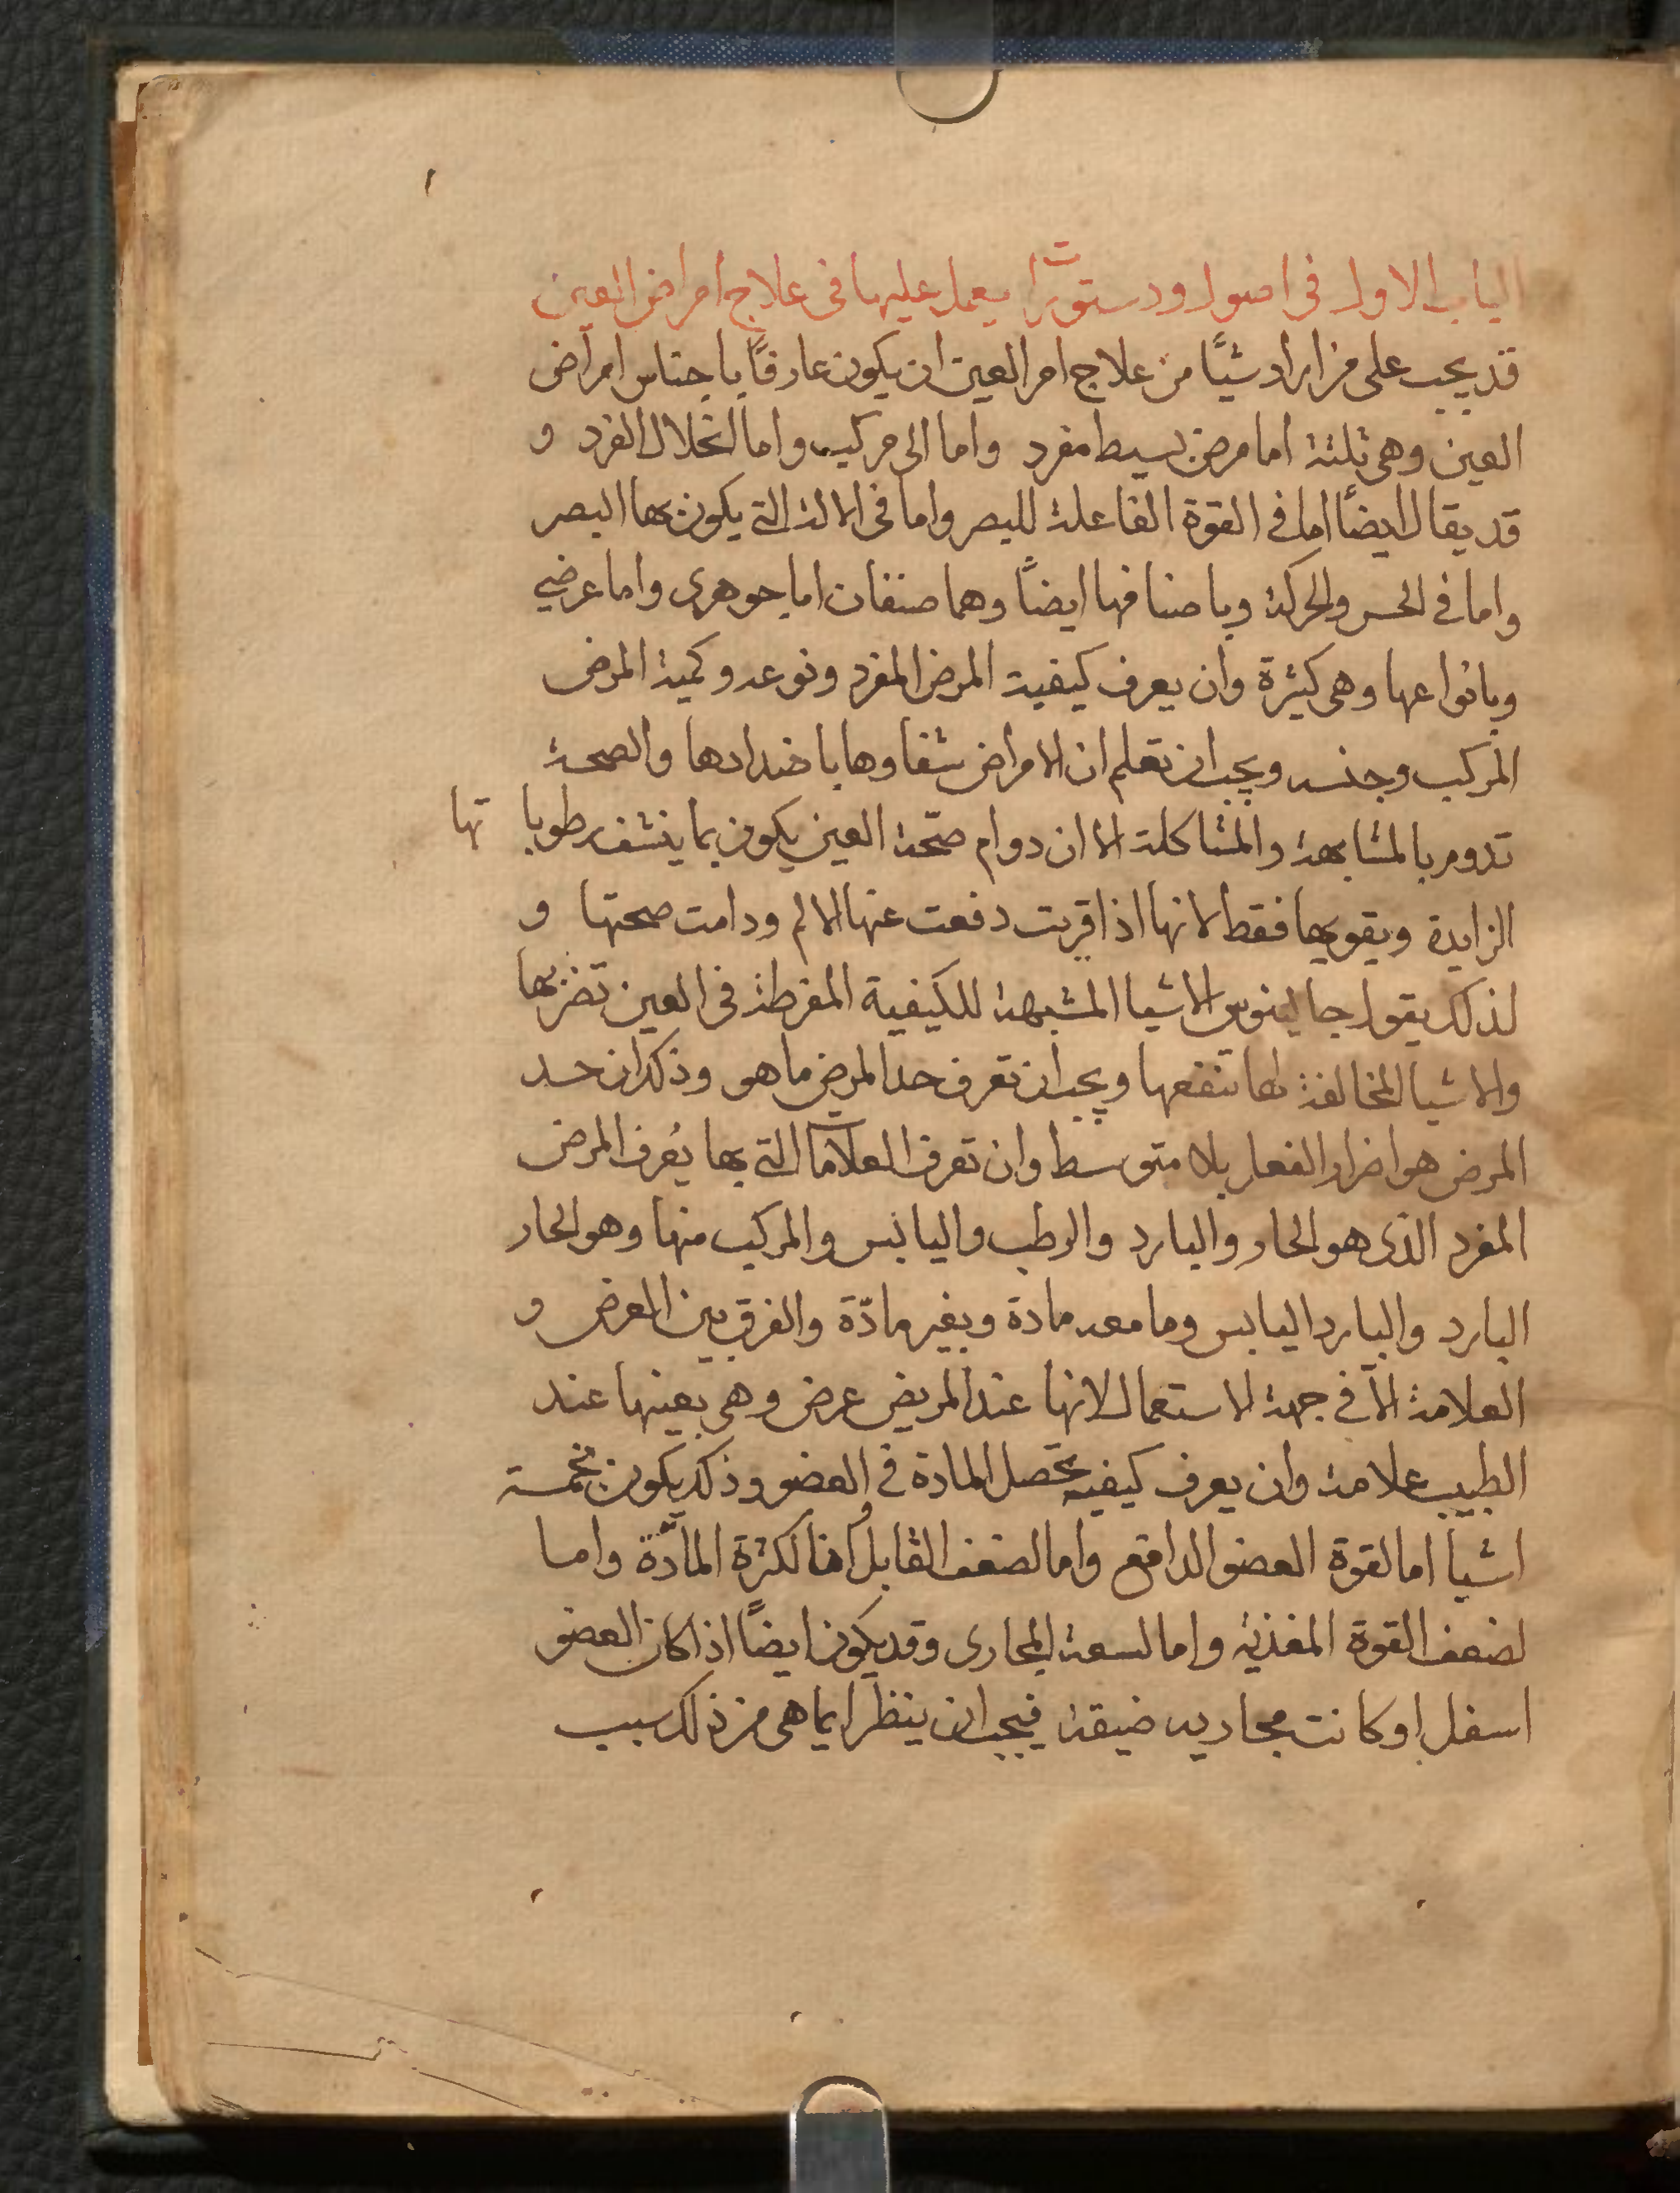 الباب الاول فى اصول ودستورات يعمل عليها فى علاج امراض العين
قد يجب على من اراد شيًا من علاج امر العين ان يكون عارفًا باجناس امراض
العين وهى ثلثة اما مرض بسيط مفرد واما الى مركب واما انحلال الفرد و
قد يقال ايضًا اما فى القوة الفاعلة للبصر واما فى الالة التى يكون بها البصر
واما فى الحس والحركة وباصنافها ايضًا وهما صنفان اما جوهرى واما عرضى
وبانواعها وهى كثيرة وان يعرف كيفية المرض المفرد ونوعه وكمية المرض
المركب وجنسه ويجب ان تعلم ان الامراض شفاوها باضدادها والصحة
تدوم بالمشابهة والمشاكلة الا ان دوام صحّة العين يكون بما ينشف رطوباتها
الزايدة ويقويها فقط لانها اذا قويت دفعت عنها الالم ودامت صحتها و
لذلك يقول جالينوس الاشيا المشبهة للكيفية المفرطة فى العين تضربها
والاشيا المخالفة لها تنفعها ويجب ان تعرف حد المرض ما هو وذكر ان حد
المرض هو اضرار الفعل بلا متوسط وان تعرف العلامات التى بها يُعرف المرض
المفرد الذى هو الحار والبارد والرطب واليابس والمركب منها وهو الحار
البارد والبارد اليابس وما معه مادة وبغير مادّة والفرق بين العرض و
العلامة الا فى جهة الاستعمال لانها عند المريض عرض وهى بعينها عند
الطبيب علامة وان يعرف كيفية تحصل المادة فى العضو وذلك يكون بخمسة
اشيا اما لقوة العضو الدافع واما لضعف القابل واما لكثرة المادّة واما
لضعف القوة المغذية واما لسعة المجارى وقد يكون ايضًا اذا كان العضو
اسفل او كانت مجاريه ضيقة فيجب ان ينظر ايما هى من ذلك سبب